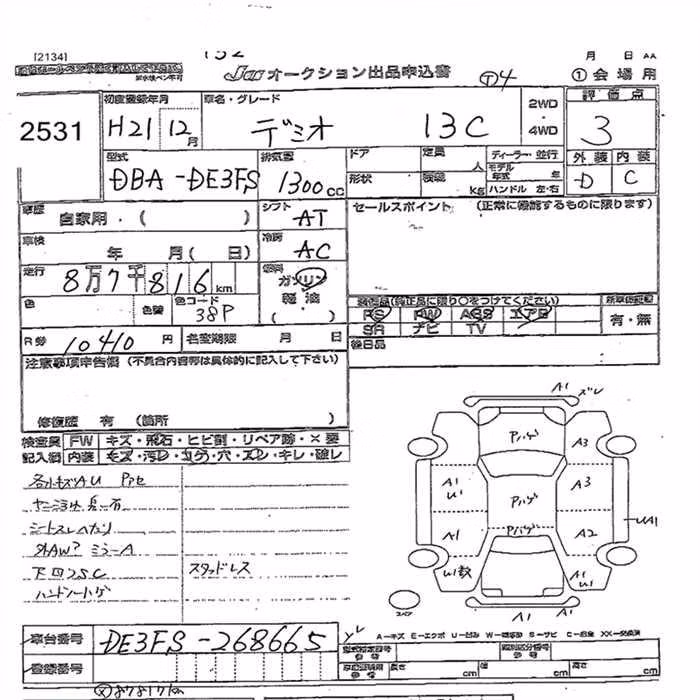 [2134]
132
Jaa オークション出品申込書
④4
月 日 AA
①会場用
2531
初度登録年月
H21 12月
車名・グレード
デミオ 13C
2WD
4WD
評価点
3
型式
DBA-DE3FS
排気量
1300cc
ドア
定員
人
形状
積載
kg
ディーラー・並行
モデル年式 年
ハンドル 左・右
外装 内装
D C
車歴
自家用・( )
シフト
AT
セールスポイント (正常に機能するものに限ります)
車検
年 月( 日)
冷房
AC
走行
8万7千816km
燃料
ガソリン
軽油
( )
色
色替
色コード
38P
装備品(純正品に限り○をつけてください)
PS PW ABS エアB
SR ナビ TV
新車保証書
有・無
R券
10410円
名変期限 月 日
後日品
注意事項申告欄 (不具合内容等は具体的に記入して下さい)
修復歴 有 (箇所 )
検査員 FW キズ・飛石・ヒビ割・リペア跡・×要
記入欄 内装 キズ・汚レ・コゲ・穴・スレ・キレ・破レ
各小キズAU
シートスレヘタリ
外AW? ミラーA
下回りSC
スタッドレス
ハンドルハゲ
A1 ズレ
Pハゲ
A3
A1
U1
Pハゲ
A3
UA1
A1
Pハゲ
A2
W1数
A1
U1
スペア
A1 A1
車台番号
DE3FS-268665
A-キズ E-エクボ U-凹み W-補修跡 S-サビ C-腐食 XX-交換済
型式指定番号
類別区分番号
登録番号
長さ cm 幅 cm 高さ cm
87817km